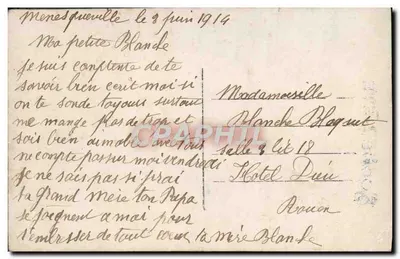 Menesqueville le 2 juin 1914
Ma petite Blanche
je suis contente de te
savoir bien ecrit moi si
on te sonde toujours surtout
ne mange pas de tron et
sois bien aimable avec tous
ne compte pas sur moi vendredi
je ne sais pas si j'irai
ta Grand Mère ton Papa
se joignent a moi pour
t'embrasser de tout coeur ta mère Blanche
Madamoiselle
Blanche Bloquet
salle 9 lit 18
Hotel Dieu
Rouen